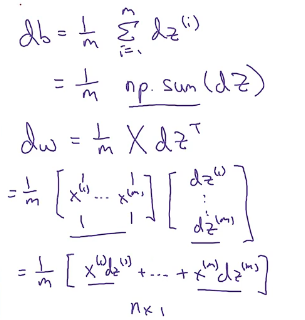 db = 1/m Σ_{i=1}^{m} dz^{(i)}
= 1/m np.sum(dZ)
dw = 1/m X dz^T
= 1/m [x^{(1)} ... x^{(m)}] [dz^{(1)} ⋮ dz^{(m)}]
= 1/m [x^{(1)}dz^{(1)} + ... + x^{(m)}dz^{(m)}]
n×1